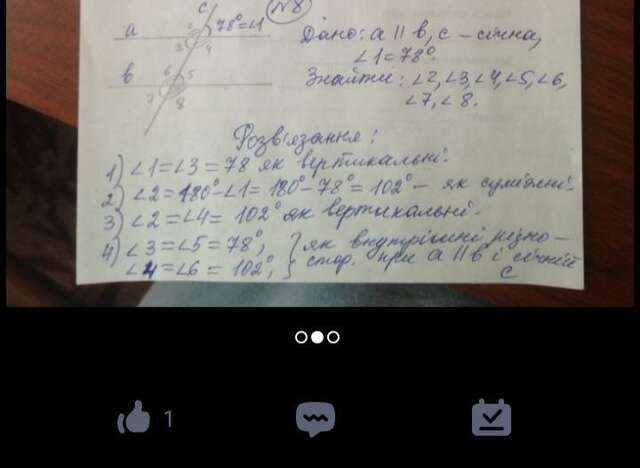 c
№8
a
2
78°=∠1
3 4
в
6 5
7 8
Дано: a || в, c – січна,
∠1=78°.
Знайти: ∠2,∠3,∠4,∠5,∠6,
∠7,∠8.
Розв'язання:
1) ∠1=∠3=78 як вертикальні.
2) ∠2=180°-∠1=180°-78°=102° – як суміжні.
3) ∠2=∠4= 102° як вертикальні.
4) ∠3=∠5=78°; } як внутрішні різно–
∠4=∠6= 102°; стор. при a || в і січній
c
1